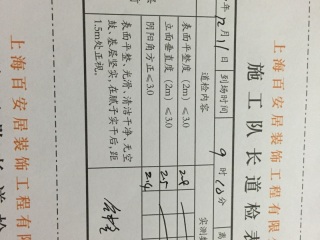 上海百安居装饰工程有限
施工队长道检表
年12月11日 到场时间 9时10分 离
道检内容 实测
表面平整度（2m）≤3.0 2.9
立面垂直度（2m）≤3.0 2.5
阴阳角方正≤3.0 2.4
表面平整、光滑、清洁干净、无空
鼓、基层坚实，在腻子实干后，距
1.5m处正视。
合格
上海百安居装饰工程有限